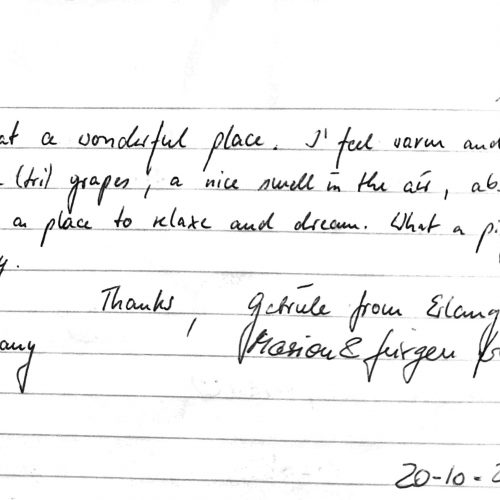 at a wonderful place. I' feel warm and
(tri) grapes, a nice smell in the air, abs
a place to relaxe and dream. What a pi
y.
Thanks, Getrüle from Erlang
any Marion & Jürgen
20-10-2